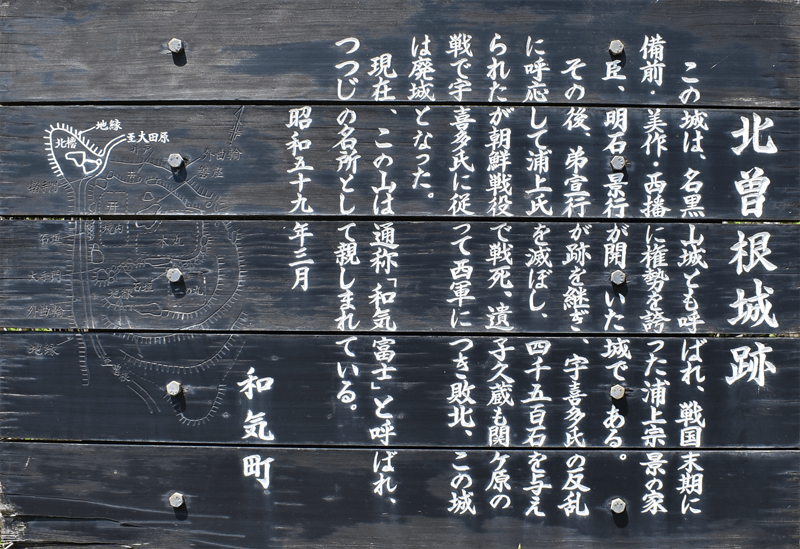 北曽根城跡
この城は、名黒山城とも呼ばれ、戦国末期に
備前・美作・西播に権勢を誇った浦上宗景の家
臣、明石景行が開いた城である。
その後、弟宣行が跡を継ぎ、宇喜多氏の反乱
に呼応して浦上氏を滅ぼし、四千五百石を与え
られたが朝鮮戦役で戦死、遺子久蔵も関ケ原の
戦で宇喜多氏に従って西軍につき敗北、この城
は廃城となった。
現在、この山は通称「和気富士」と呼ばれ、
つつじの名所として親しまれている。
昭和五十九年三月
和気町
地縁
至大田原
北櫓
外曲輪
本丸
大手門
外曲輪